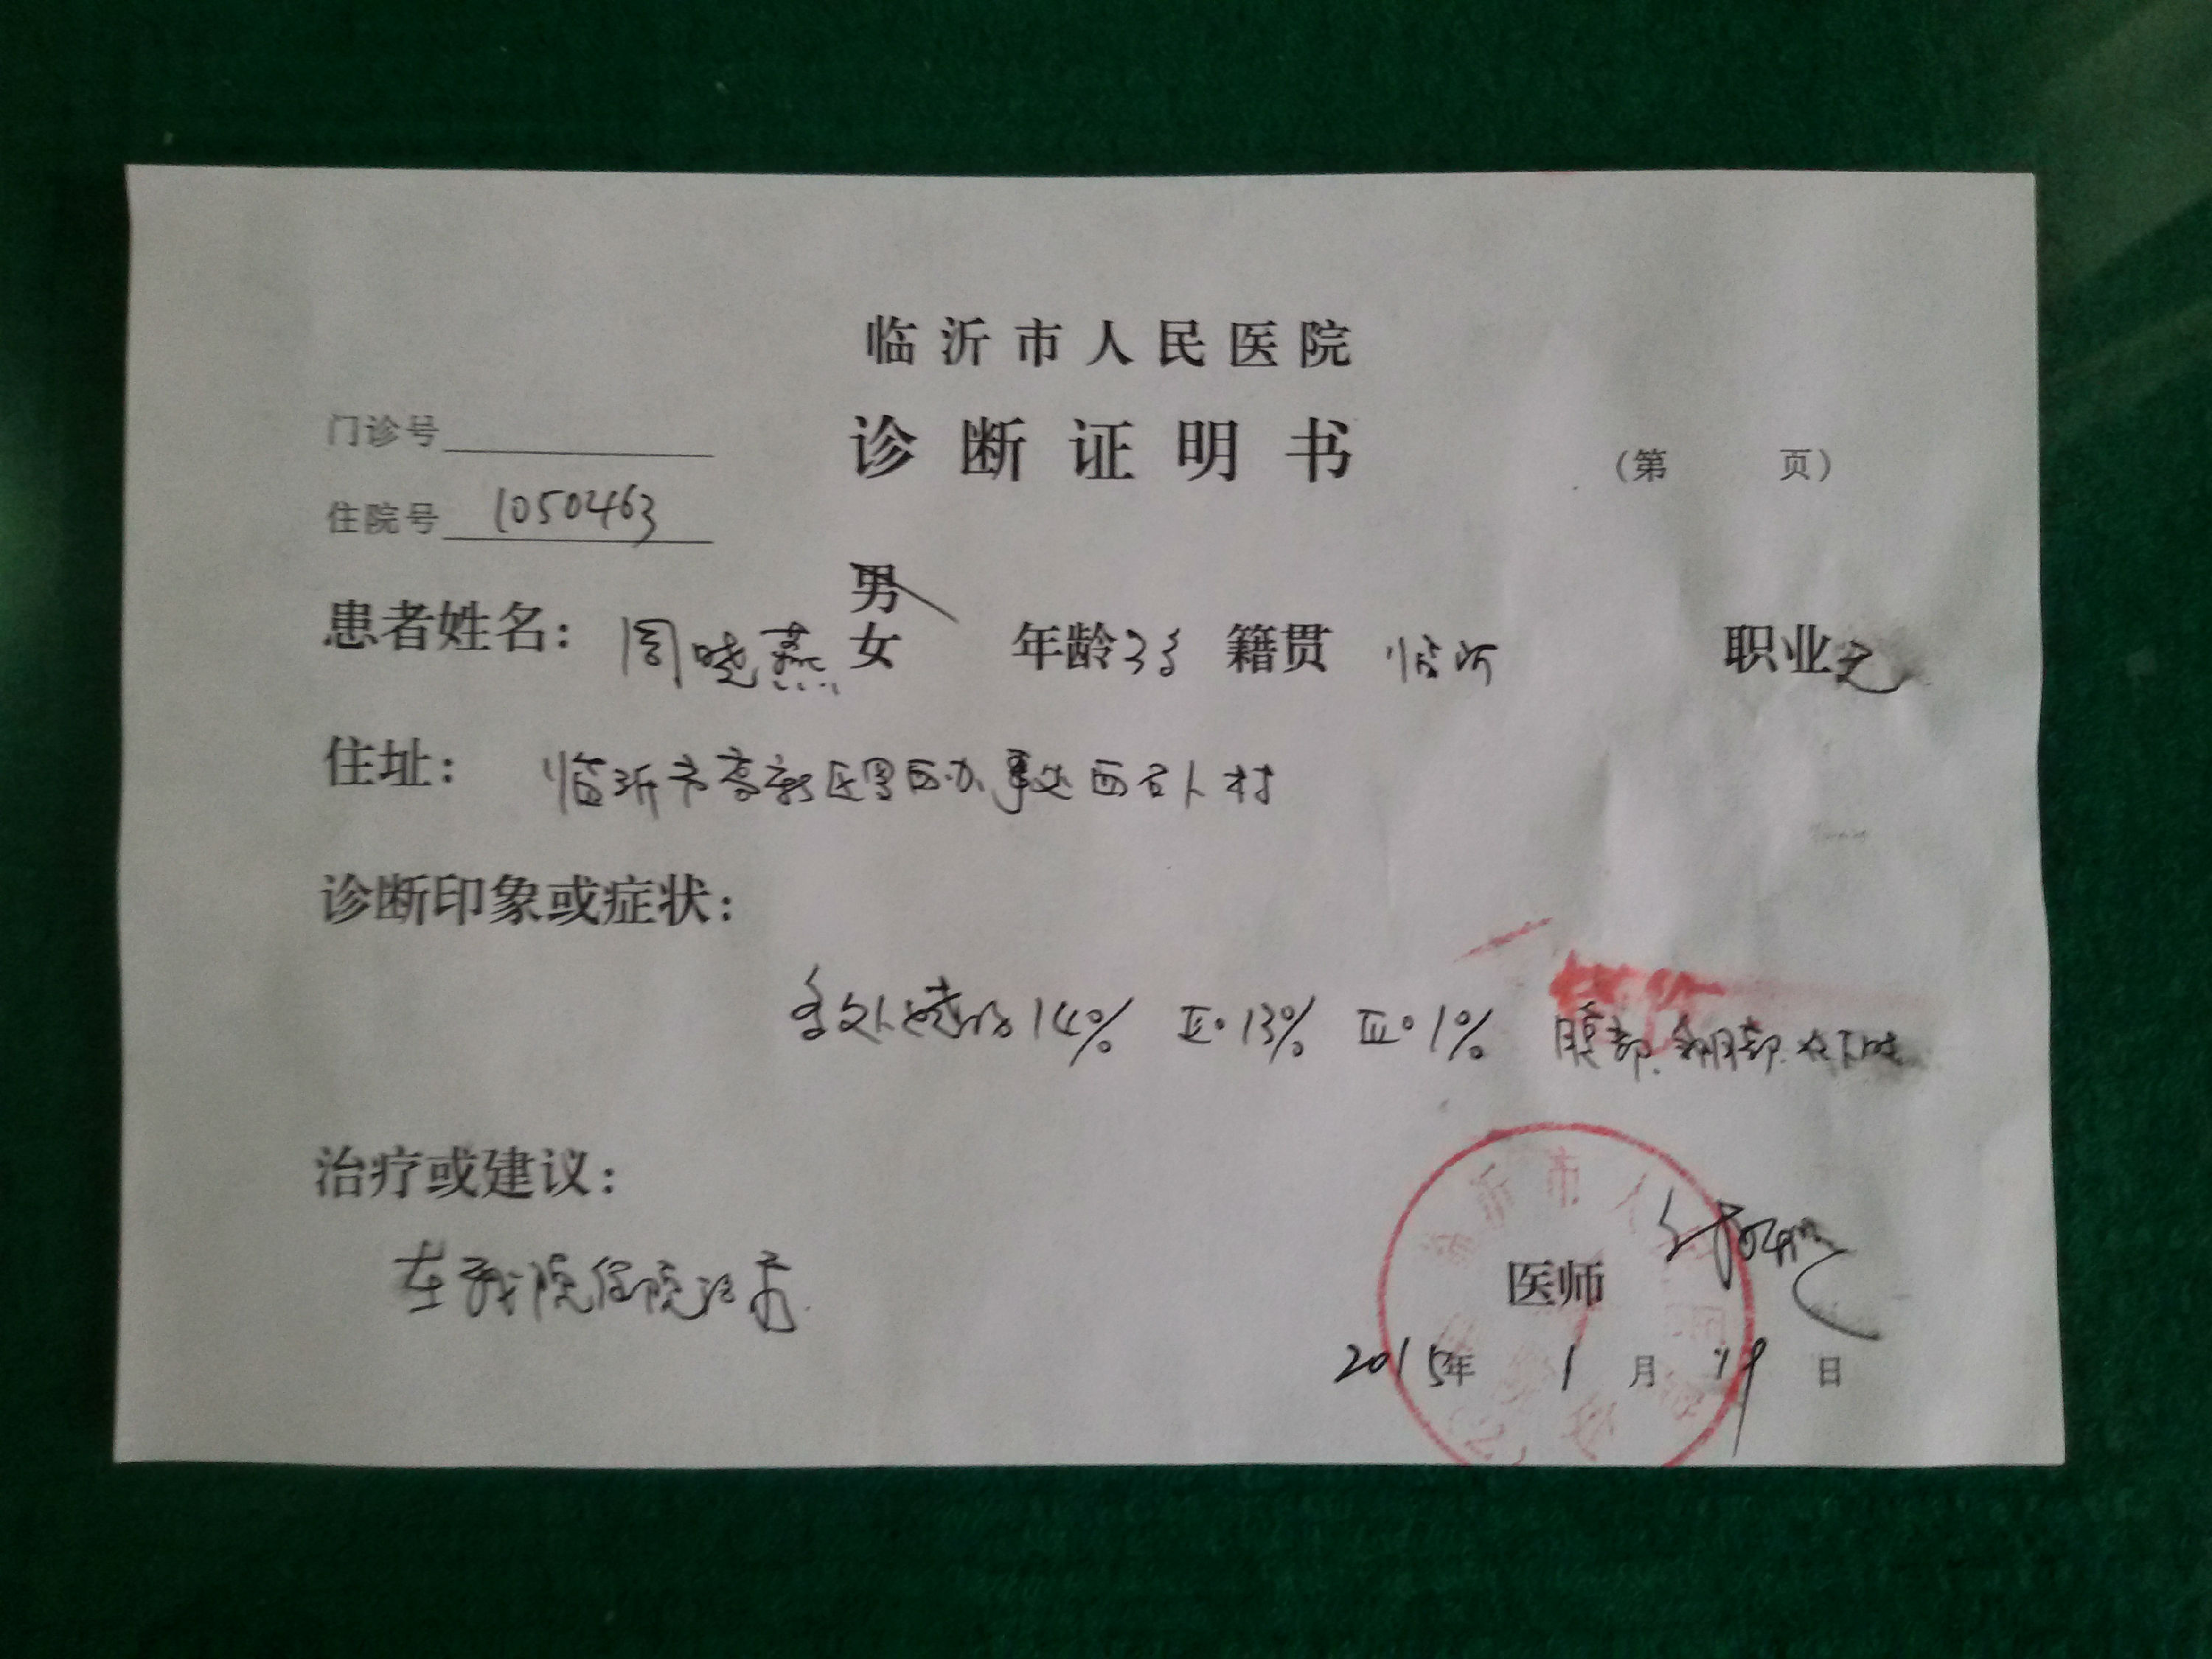 临沂市人民医院
诊断证明书
(第 页)
门诊号
住院号 1050463
患者姓名: 周晓燕 男 女 年龄33 籍贯 临沂 职业无
住址: 临沂市高新区罗西办事处西石人村
诊断印象或症状:
多处烧伤14% Ⅱ°13% Ⅲ°1% 腹部.会阴部.双下肢
治疗或建议:
在我院住院治疗.
医师
2015年 1 月 19 日